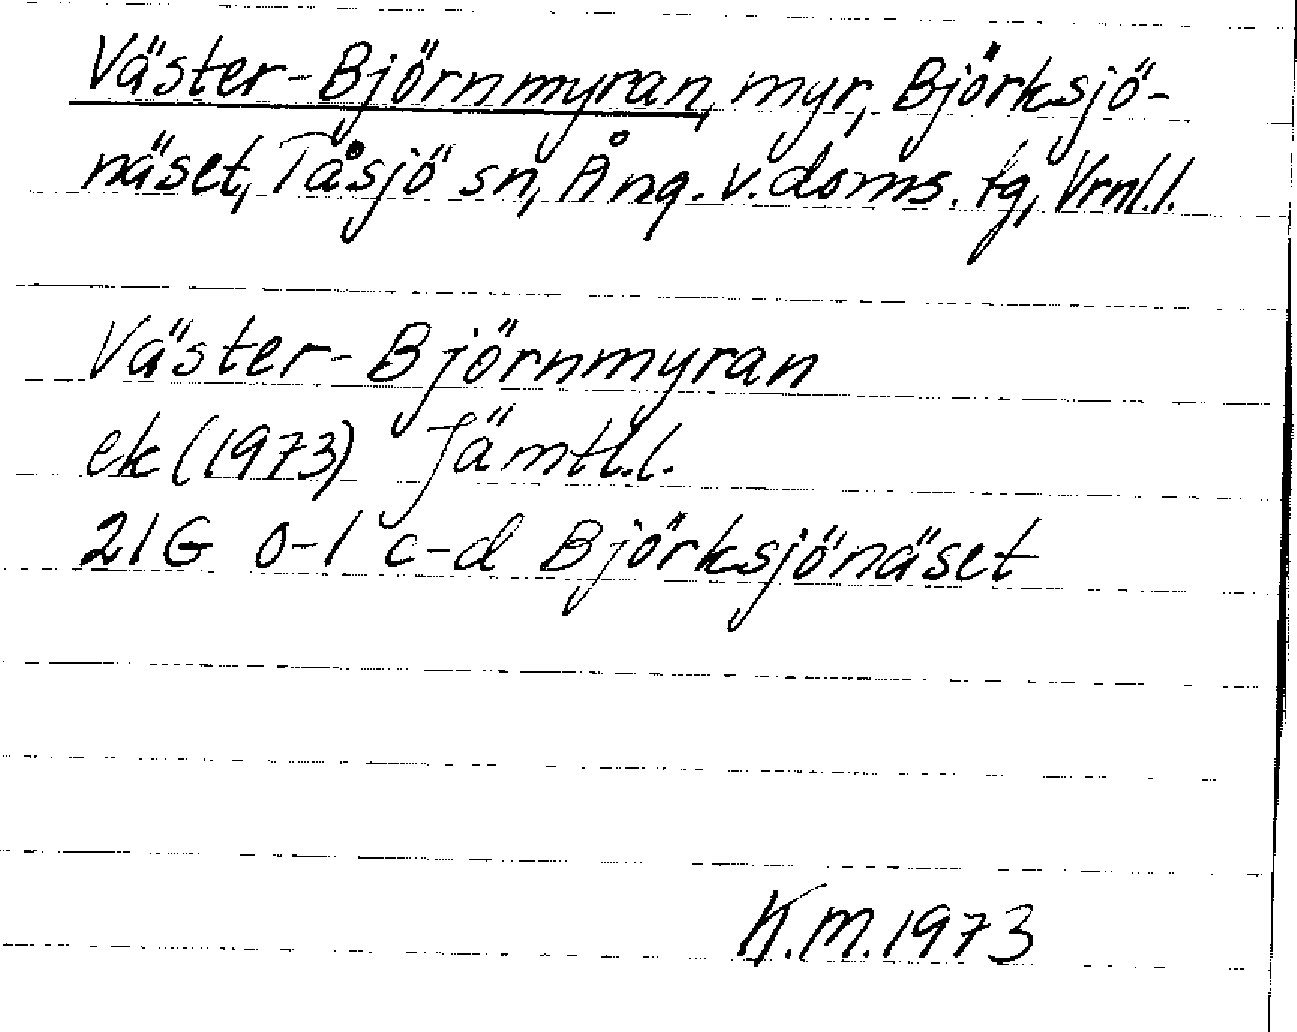 Väster-Björnmyran, myr, Björksjö-
näset, Tåsjö sn, Ång. v. doms. tg, Vrnl.l.
Väster-Björnmyran
ek (1973) Jämtl.l.
21G 0-1 c-d Björksjönäset
K.M. 1973